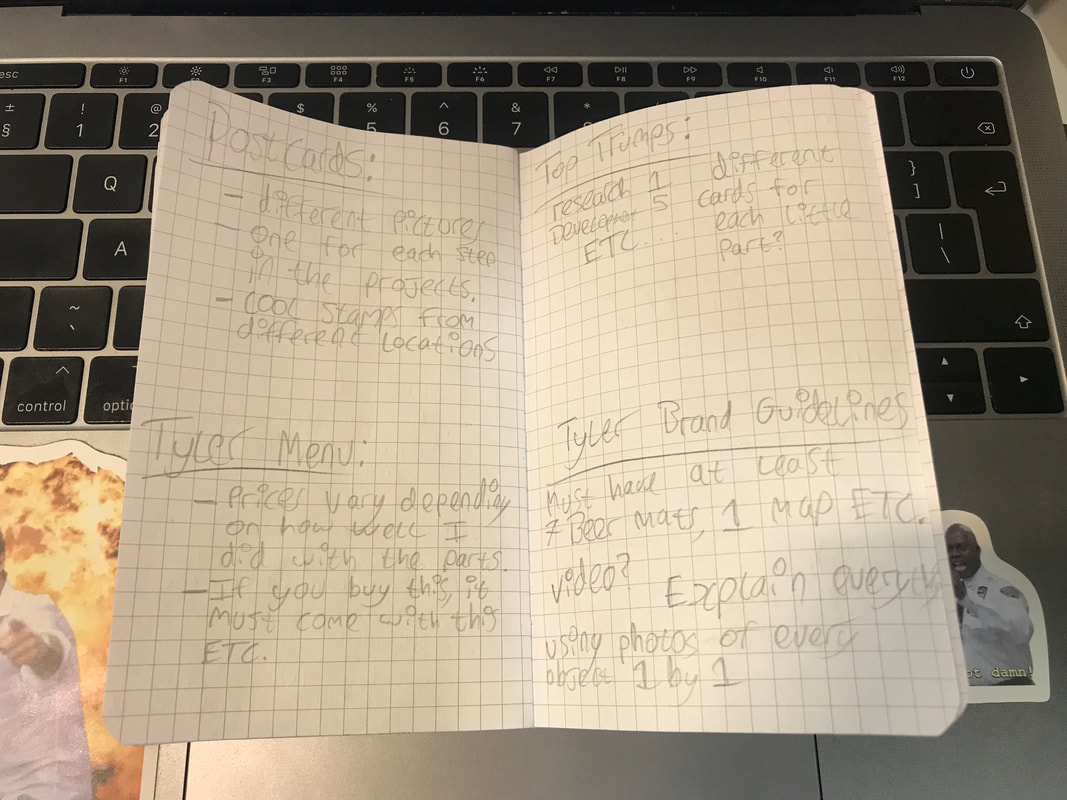 Postcards:
- different pictures
- one for each step
in the projects.
- cool stamps from
different locations
Tyler Menu:
- prices vary depending
on how well I
did with the parts.
- If you buy this, it
must come with this
ETC.
Top Trumps:
research 1
Development 5
ETC...
different
cards for
each little
part?
Tyler Brand Guidelines
Must have at least
7 Beer mats, 1 map ETC.
video? Explain
using photos of every
object 1 by 1
esc
F1
F2
F3
F4
F5
F6
F7
F8
F9
F10
F11
F12
±
§
!
1
@
2
$
%
5
^
6
&
7
*
Q
}
]
A
|
\
~
`
control
ot damn!